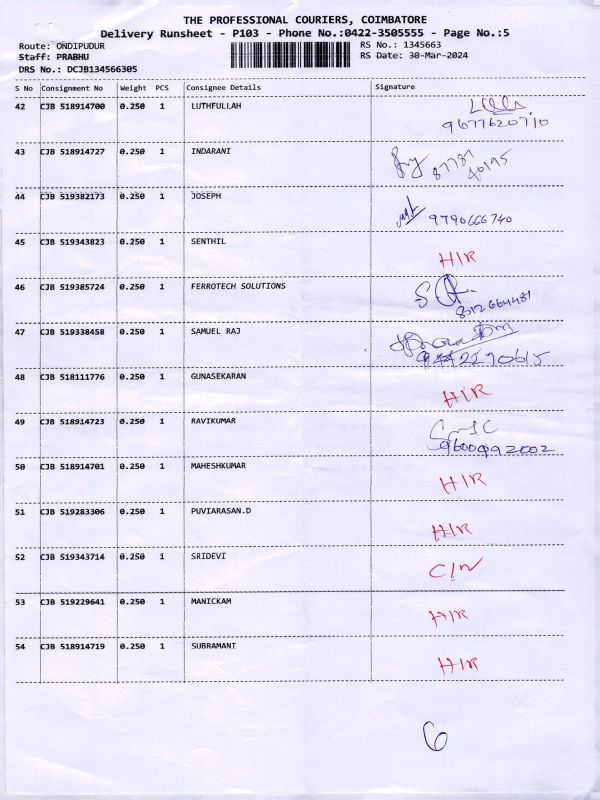 THE PROFESSIONAL COURIERS, COIMBATORE
Delivery Runsheet - P103 - Phone No.:0422-3505555 - Page No.:5
Route: ONDIPUDUR
RS No.: 1345663
Staff: PRABHU
RS Date: 30-Mar-2024
DRS No.: DCJB134566305
S No Consignment No Weight PCS Consignee Details Signature
42 CJB 518914700 0.250 1 LUTHFULLAH
9677620710
43 CJB 518914727 0.250 1 INDARANI
87787
40195
44 CJB 519382173 0.250 1 JOSEPH
9790666740
45 CJB 519343823 0.250 1 SENTHIL
H/R
46 CJB 519385724 0.250 1 FERROTECH SOLUTIONS
47 CJB 519338458 0.250 1 SAMUEL RAJ
48 CJB 518111776 0.250 1 GUNASEKARAN
H/R
49 CJB 518914723 0.250 1 RAVIKUMAR
9600992002
50 CJB 518914701 0.250 1 MAHESHKUMAR
H/R
51 CJB 519283306 0.250 1 PUVIARASAN.D
H/R
52 CJB 519343714 0.250 1 SRIDEVI
C/N
53 CJB 519229641 0.250 1 MANICKAM
H/R
54 CJB 518914719 0.250 1 SUBRAMANI
H/R
6